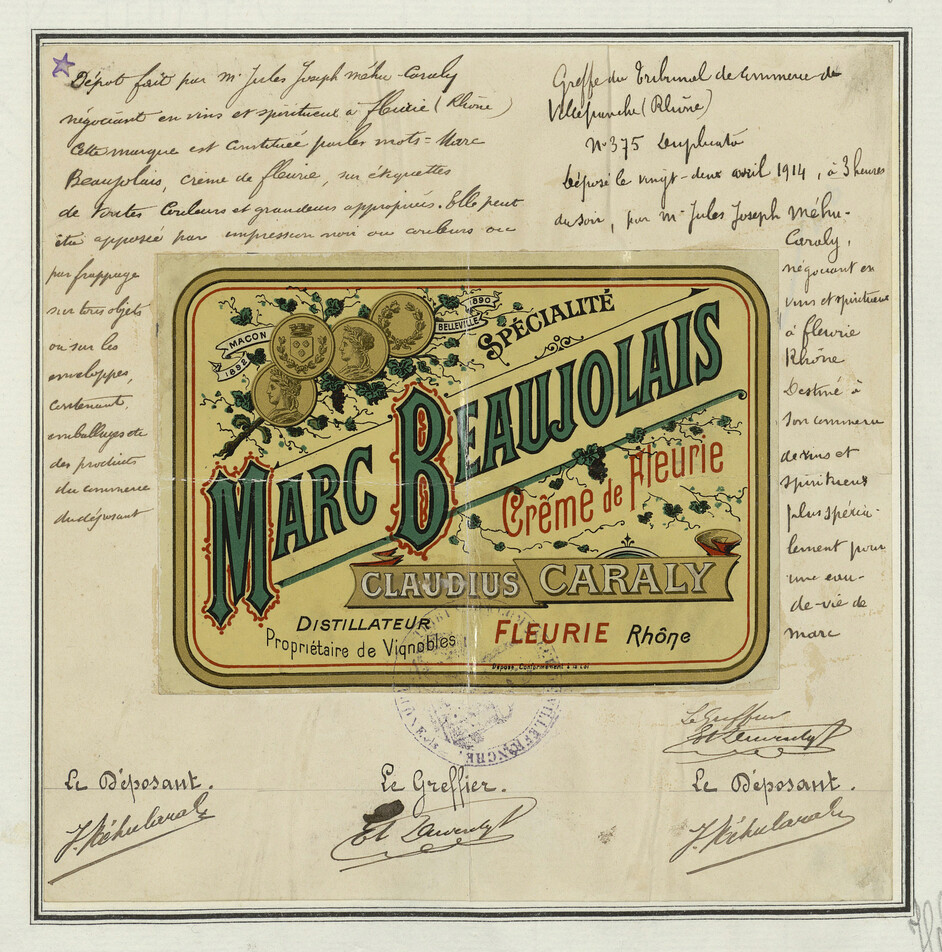 Dépot fait par Mr Jules Joseph Méhu-Caraly
négociant en vins et spiritueux à fleurie (Rhône)
Cette marque est constituée par les mots = Marc
Beaujolais, crème de fleurie, sur étiquettes
de toutes Couleurs et grandeurs appropriées. Elle peut
être apposée par impression noir ou couleurs ou
par frappage
sur tous objets
ou sur les
enveloppes,
contenant,
emballages etc
des produits
du commerce
du déposant
Greffe du Tribunal de Commerce de
Villefranche (Rhône)
No 375 Duplicata
Déposé le vingt-deux avril 1914, à 3 heures
du soir, par Mr Jules Joseph Méhu-
Caraly,
négociant en
vins et spiritueux
à fleurie
Rhône
Destiné à
son commerce
de vins et
spiritueux
plus spécia-
lement pour
une eau-
de-vie de
marc
MACON
1892
BELLEVILLE
1890
SPÉCIALITÉ
MARC BEAUJOLAIS
Crème de Fleurie
CLAUDIUS CARALY
DISTILLATEUR
Propriétaire de Vignobles
FLEURIE Rhône
Déposé, Conformément à la Loi
VILLEFRANCHE
Le Greffier
Le Déposant.
J. Méhu Caraly
Le Greffier.
Le Déposant.
J. Méhu Caraly